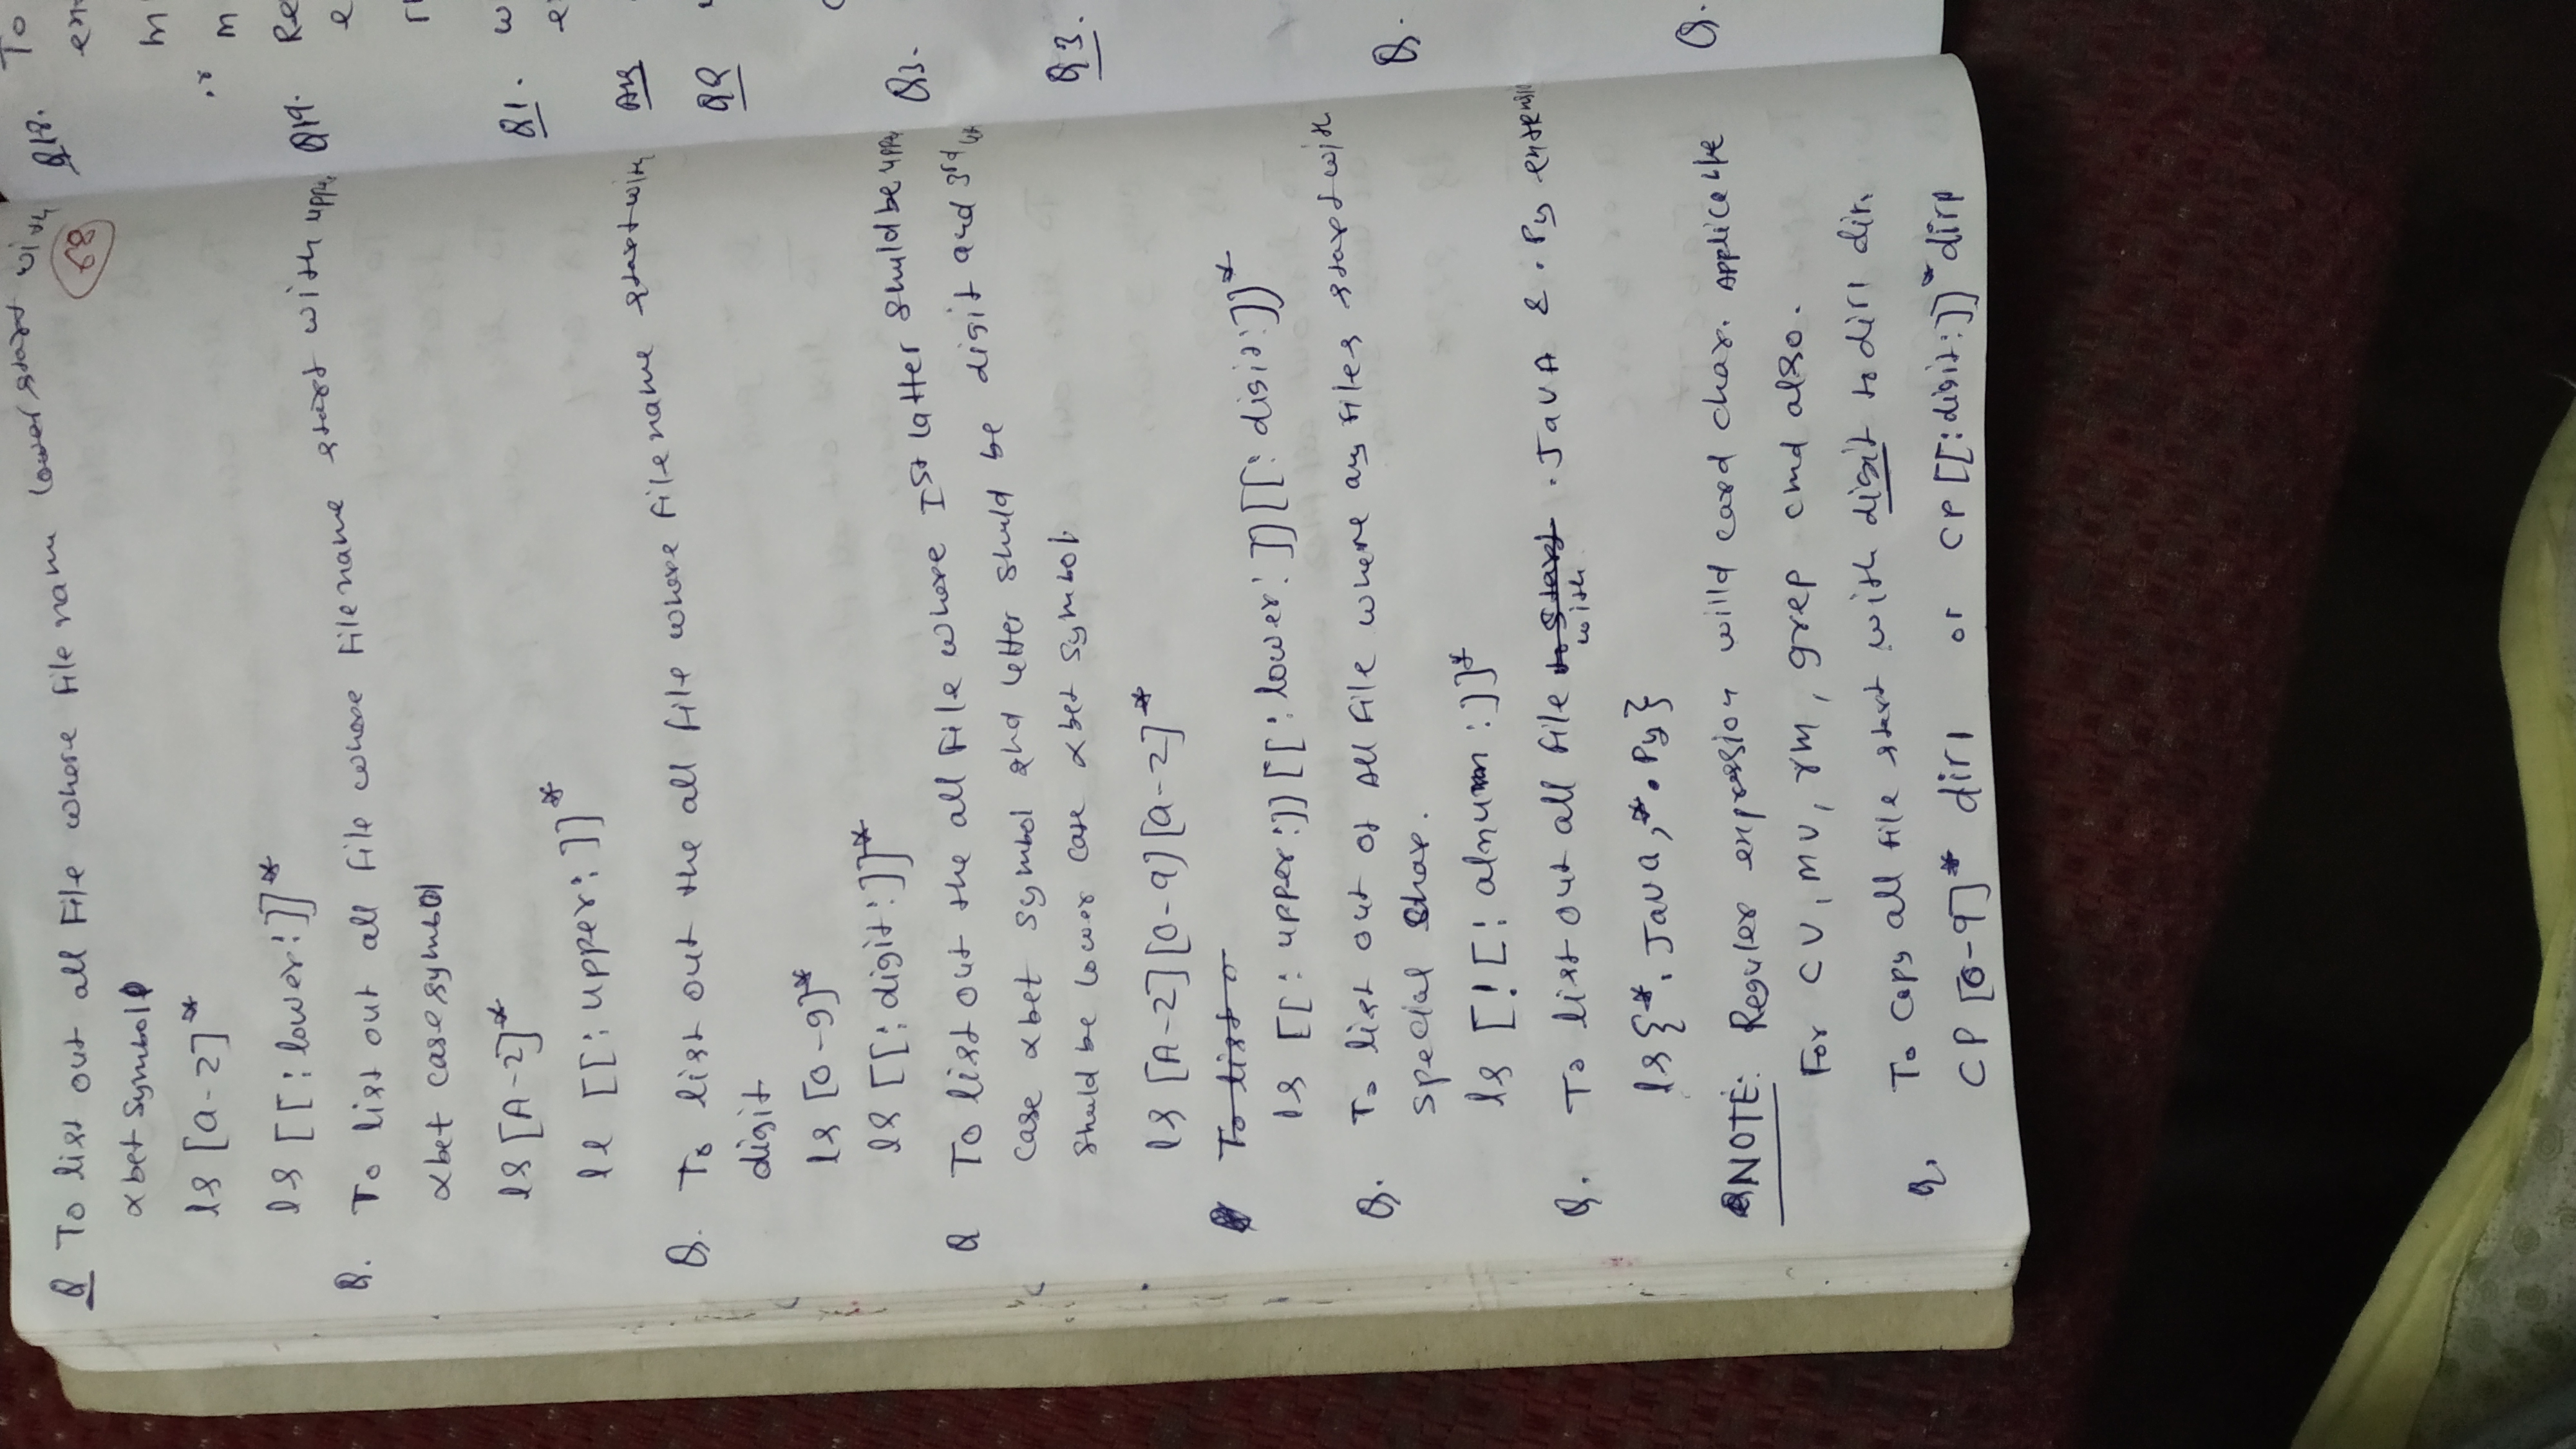 Q To list out all File where file name lower start with
αbet symbol
ls [a-z]*
ls [[:lower:]]*
68
Q. To list out all File whose Filename start with uppr
αbet case symbol
ls [A-Z]*
ll [[:upper:]]*
Q. To list out the all file whose filename start with
digit
ls [0-9]*
ls [[:digit:]]*
Q To list out the all File whose Ist latter shuld be uppr
case αbet symbol and letter should be digit and 3rd
should be lower case αbet symbol
ls [A-Z][0-9][a-z]*
To list o
ls [[:upper:]][[:lower:]][[:digit:]]*
Q. To list out of All File where any files start with
special char.
ls [![:alnum:]]*
Q. To list out all file to start with .Java & .Py
ls{*.Java,*.Py}
NOTE: Reguler expression wild card char. applicable
For CV, mv, rm, grep cmd also.
Q. To copy all file start with digit to dir1 dir.
CP [0-9]* dir1 or CP[[:digit:]]* dir1
Q18. To
Q19. Re
Q1. w
Ans
Q2
Q3.
Q.
Q.